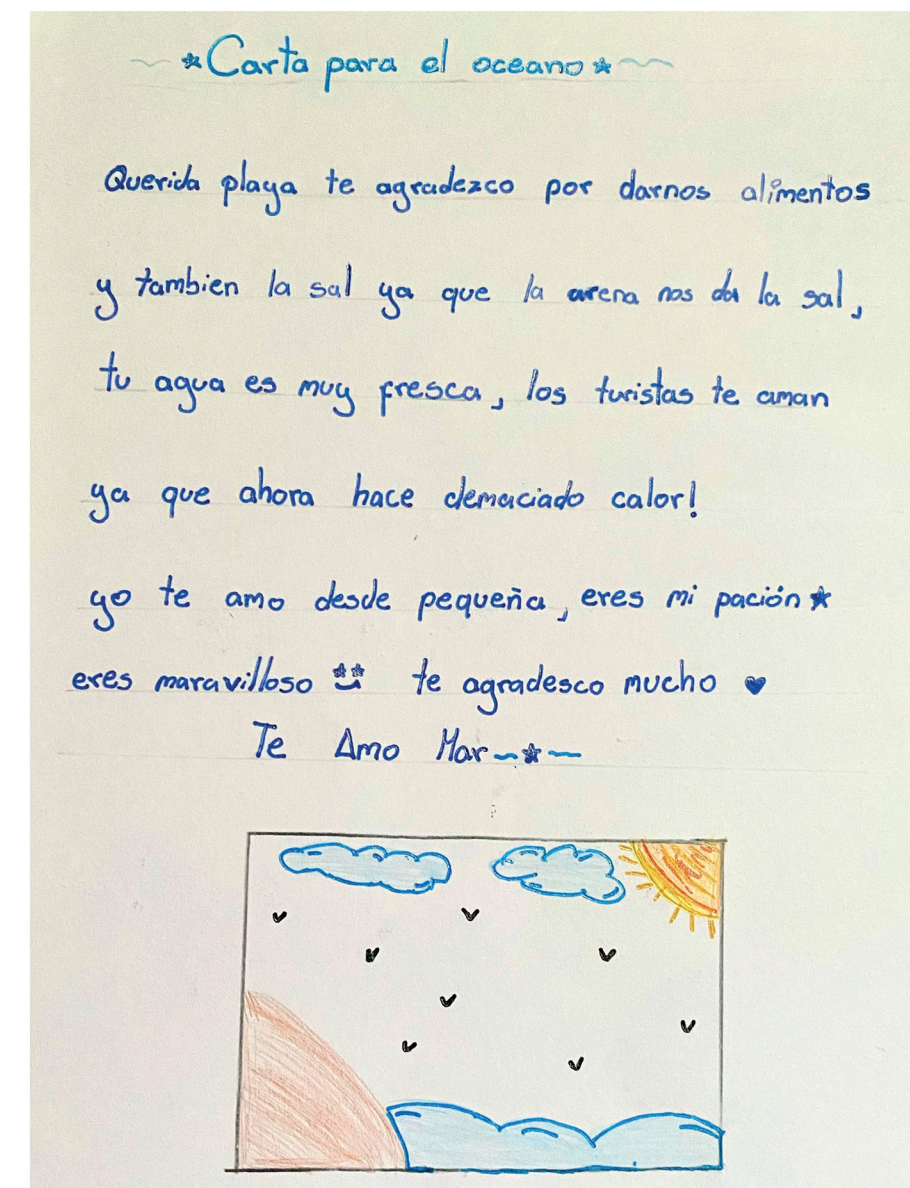 Carta para el oceano
Querida playa te agradezco por darnos alimentos
y tambien la sal ya que la arena nos da la sal,
tu agua es muy fresca, los turistas te aman
ya que ahora hace demaciado calor!
yo te amo desde pequeña, eres mi pación
eres maravilloso te agradesco mucho
Te Amo Mar